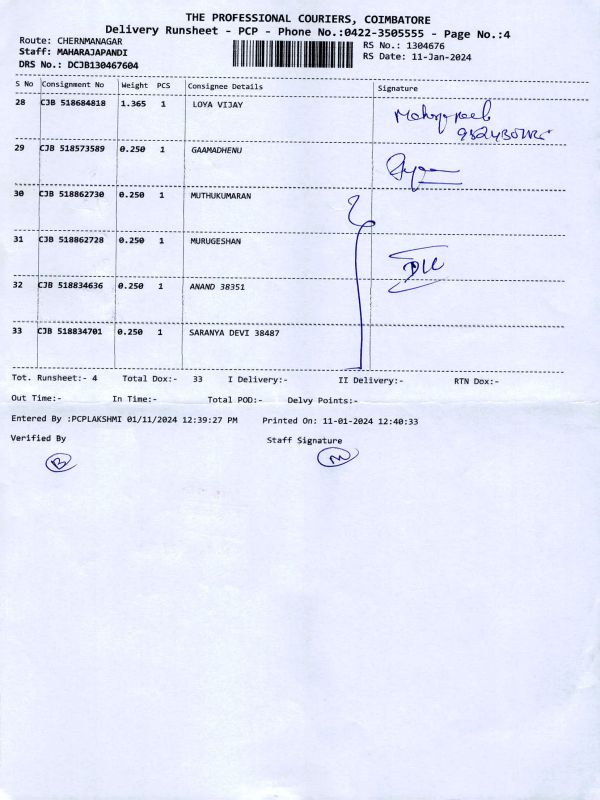 THE PROFESSIONAL COURIERS, COIMBATORE
Delivery Runsheet - PCP - Phone No.:0422-3505555 - Page No.:4
Route: CHERNMANAGAR
RS No.: 1304676
Staff: MAHARAJAPANDI
RS Date: 11-Jan-2024
DRS No.: DCJB130467604
S No Consignment No Weight PCS Consignee Details Signature
28 CJB 518684818 1.365 1 LOYA VIJAY
29 CJB 518573589 0.250 1 GAAMADHENU
30 CJB 518862730 0.250 1 MUTHUKUMARAN
31 CJB 518862728 0.250 1 MURUGESHAN
32 CJB 518834636 0.250 1 ANAND 38351
33 CJB 518834701 0.250 1 SARANYA DEVI 38487
Tot. Runsheet:- 4 Total Dox:- 33 I Delivery:- II Delivery:- RTN Dox:-
Out Time:- In Time:- Total POD:- Delvy Points:-
Entered By :PCPLAKSHMI 01/11/2024 12:39:27 PM Printed On: 11-01-2024 12:40:33
Verified By Staff Signature
B M